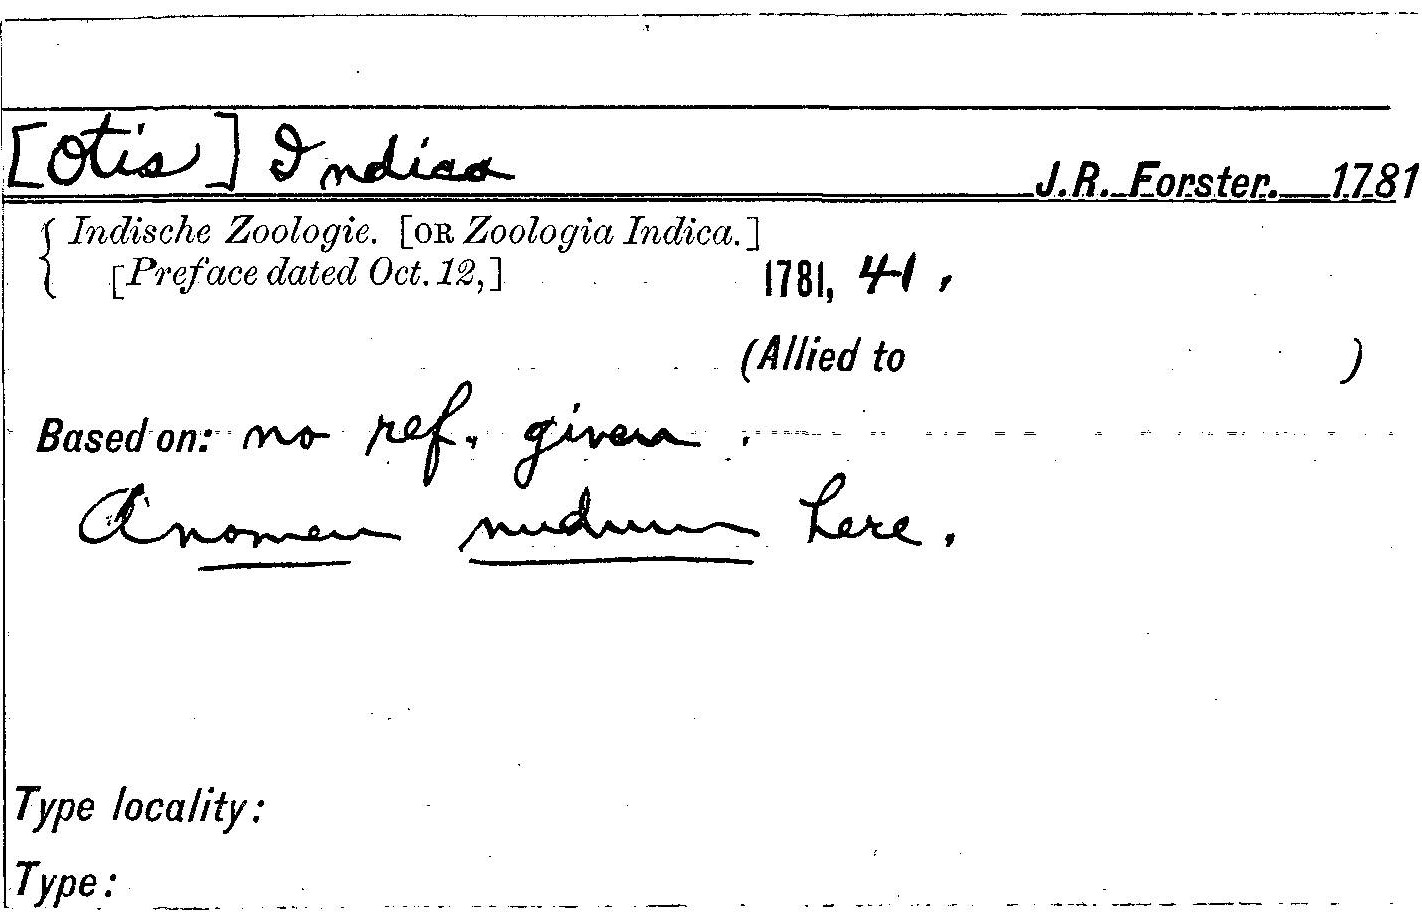 [Otis] Indica J.R. Forster. 1781
Indische Zoologie. [OR Zoologia Indica.]
[Preface dated Oct. 12,] 1781, 41.
(Allied to )
Based on: no ref. given.
A nomen nudum here.
Type locality:
Type: